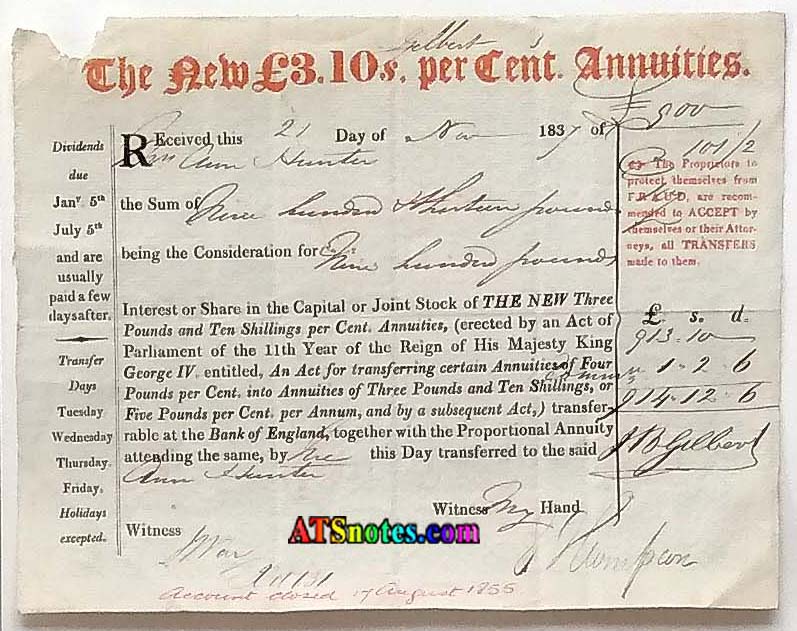 Gilbert
The New £3.10s. per Cent. Annuities.
£900
101 1/2
Dividends
due
Janʸ 5th
July 5th
and are
usually
paid a few
days after.
Transfer
Days
Tuesday
Wednesday
Thursday.
Friday.
Holidays
excepted.
Received this 21 Day of Nov 1837 of
Ann Hunter
the Sum of Nine hundred & thirteen pounds
being the Consideration for
Nine hundred pounds
Interest or Share in the Capital or Joint Stock of THE NEW Three
Pounds and Ten Shillings per Cent. Annuities, (erected by an Act of
Parliament of the 11th Year of the Reign of His Majesty King
George IV. entitled, An Act for transferring certain Annuities of Four
Pounds per Cent. into Annuities of Three Pounds and Ten Shillings, or
Five Pounds per Cent. per Annum, and by a subsequent Act,) transfer-
rable at the Bank of England, together with the Proportional Annuity
attending the same, by me this Day transferred to the said
Ann Hunter
Witness My Hand
Witness
J Thompson
The Proprietors to
protect themselves from
FRAUD, are recom-
mended to ACCEPT by
themselves or their Attor-
neys, all TRANSFERS
made to them.
£. s. d.
913.10
1.2.6
914.12.6
J B Gilbert
ATSnotes.com
Account closed 17 August 1855